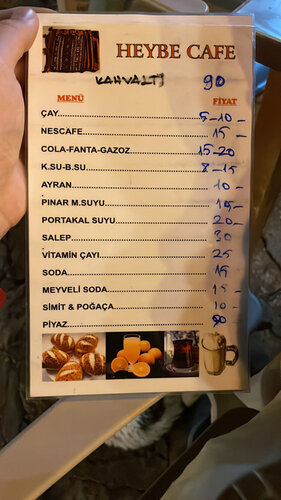 HEYBE CAFE
KAHVALTI 90
MENÜ FİYAT
ÇAY 5-10-
NESCAFE 15-
COLA-FANTA-GAZOZ 15-20
K.SU-B.SU 8-15
AYRAN 10-
PINAR M.SUYU 15-
PORTAKAL SUYU 20-
SALEP 30
VİTAMİN ÇAYI 25
SODA 15
MEYVELİ SODA 15-
SİMİT & POĞAÇA 10-
PİYAZ